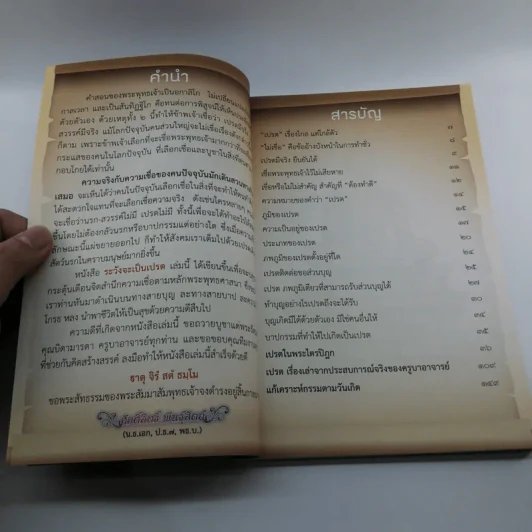 คำนำ
คำสอนของพระพุทธเจ้าเป็นอกาลิโก ไม่เปลี่ยนแปลง
กาลเวลา และเป็นสันทิฏฐิโก คือทนต่อการพิสูจน์ให้เห็น
ด้วยตัวเอง ด้วยเหตุทั้ง ๒ นี้ทำให้ข้าพเจ้าเชื่อว่า เปรตมี
สวรรค์มีจริง แม้โลกปัจจุบันคนส่วนใหญ่จะไม่เชื่อเรื่อง
ก็ตาม เพราะข้าพเจ้าเลือกที่จะเชื่อพระพุทธเจ้ามากกว่า
กระแสของคนในโลกปัจจุบัน ที่เลือกเชื่อและบูชาในสิ่งที่
กอบโกยได้เท่านั้น
ความจริงกับความเชื่อของคนปัจจุบันมักเดินสวนทาง
เสมอ จะเห็นได้ว่าคนในปัจจุบันเลือกเชื่อในสิ่งที่จะทำให้
ได้สะดวกใจแทนที่จะเลือกเชื่อความจริง ดังเช่นใครหลายๆ
จะเชื่อว่านรก-สวรรค์ไม่มี เปรตไม่มี ทั้งนี้เพื่อจะได้ทำอะไร
ขึ้นโดยไม่ต้องกลัวนรกหรือบาปกรรมแต่อย่างใด ซึ่งเมื่อความ
ลักษณะนี้แผ่ขยายออกไป ก็ทำให้สังคมเราเต็มไปด้วยเปรต
สัตว์นรกในคราบมนุษย์มากยิ่งขึ้น
หนังสือ ระวังจะเป็นเปรต เล่มนี้ ได้เขียนขึ้นเพื่อ
กระตุ้นเตือนจิตสำนึกความเชื่อตามหลักพระพุทธศาสนา
เราท่านหันมาดำเนินบนทางสายบุญ ละทางสายบาป
โกรธ หลง นำพาชีวิตให้เป็นสุขด้วยความดีสืบไป
ความดีที่เกิดจากหนังสือเล่มนี้ ขอถวายบูชาแด่พระ
คุณบิดามารดา ครูบาอาจารย์ทุกท่าน และขอขอบคุณ
ที่ช่วยกันคิดสร้างสรรค์ ลงมือทำให้หนังสือเล่มนี้สำเร็จด้วยดี
ธาตุ จิรํ สตํ ธมฺโม
ขอพระสัทธรรมของพระสัมมาสัมพุทธเจ้าจงดำรงอยู่สิ้น
(น.ธ.เอก, ป.ธ.๗, พธ.บ.)
สารบัญ
"เปรต" เรื่องไกล แต่ใกล้ตัว ๗
"ไม่เชื่อ" คือข้ออ้างบังหน้าในการทำชั่ว ๘
เปรตมีจริง ยืนยันได้ ๙
เชื่อพระพุทธเจ้าไว้ไม่เสียหาย ๑๑
เชื่อหรือไม่ไม่สำคัญ สำคัญที่ "ต้องทำดี" ๑๒
ความหมายของคำว่า "เปรต" ๑๔
ภูมิของเปรต ๑๕
ความเป็นอยู่ของเปรต ๑๗
ประเภทของเปรต ๒๐
ภพภูมิของเปรตตั้งอยู่ที่ใด ๒๔
เปรตติดต่อขอส่วนบุญ ๒๕
เปรต ภพภูมิเดียวที่สามารถรับส่วนบุญได้ ๒๗
ทำบุญอย่างไรเปรตถึงจะได้รับ ๓๐
บุญเกิดมีได้ด้วยตัวเอง มิใช่คนอื่นให้ ๓๔
บาปกรรมที่ทำให้ไปเกิดเป็นเปรต ๓๕
เปรตในพระไตรปิฎก ๓๖
เปรต เรื่องเล่าจากประสบการณ์จริงของครูบาอาจารย์ ๑๐๙
แก้เคราะห์กรรมตามวันเกิด ๑๔๙